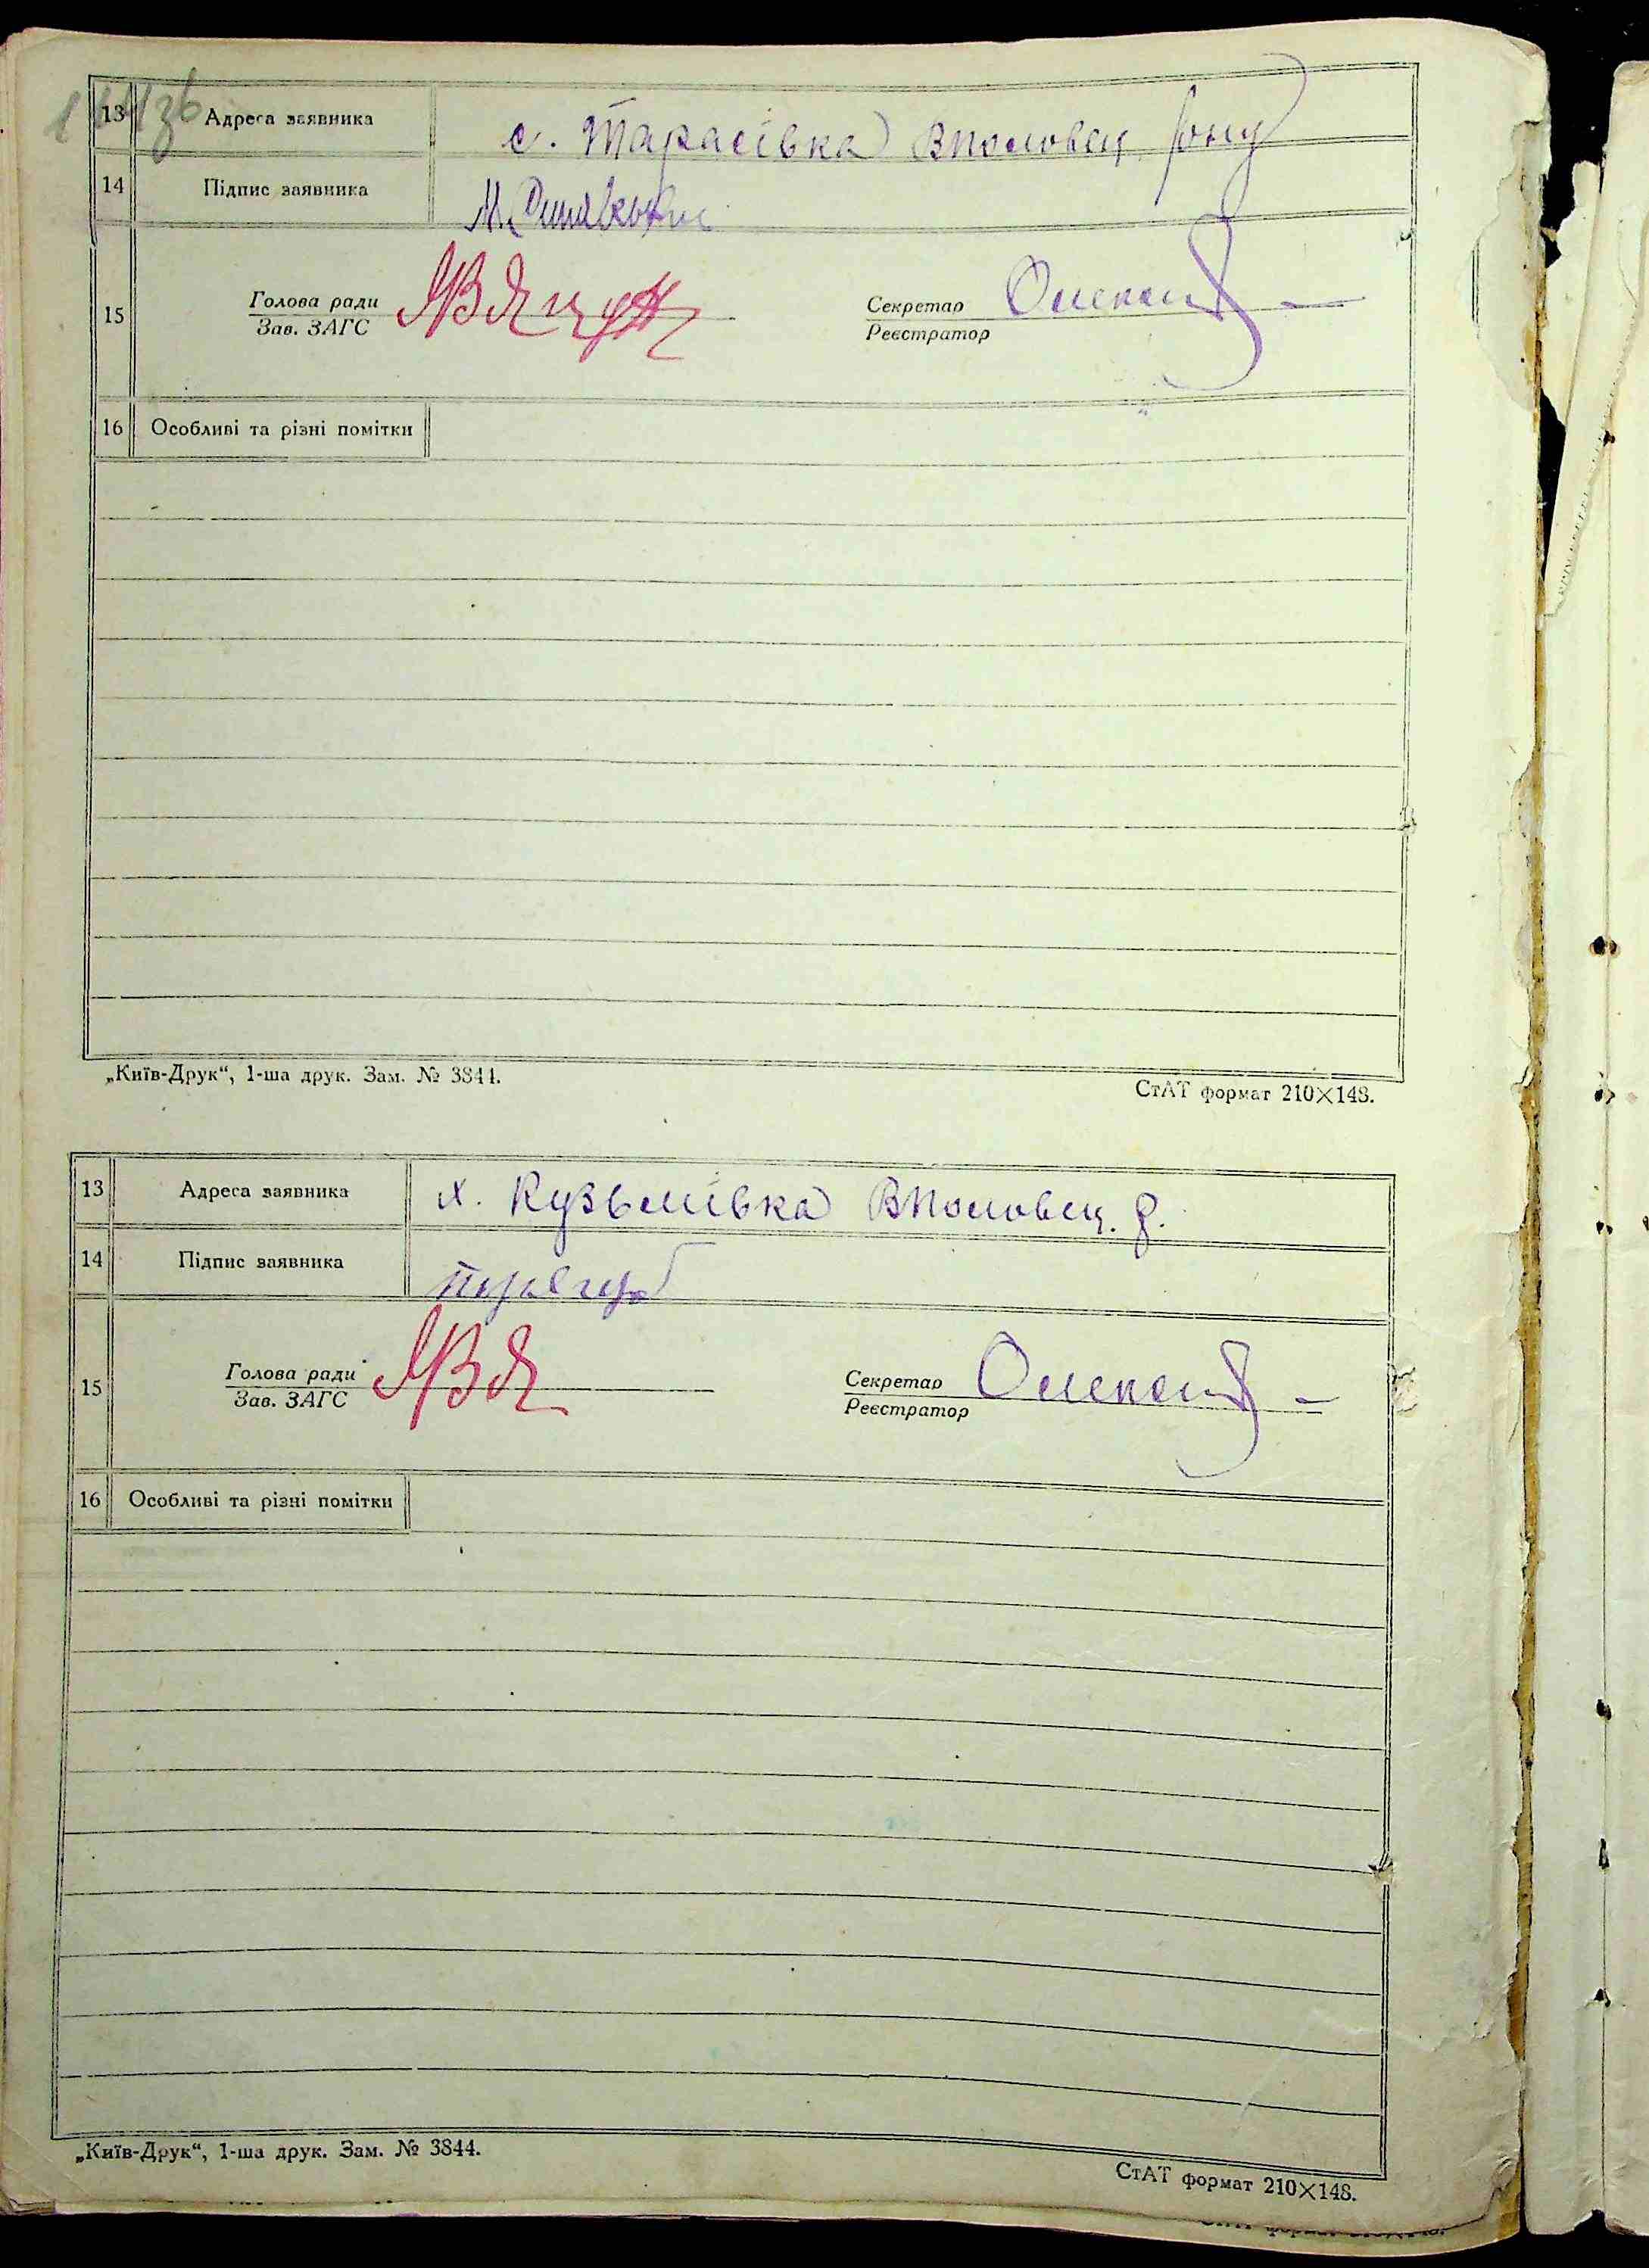 13 Адреса заявника с. Тарасівка Вполовец. рону
14 Підпис заявника
15 Голова ради Секретар
Зав. ЗАГС Реєстратор
16 Особливі та різні помітки
„Київ-Друк“, 1-ша друк. Зам. № 3844. СтАТ формат 210×148.
13 Адреса заявника х. Кузьмівка Вполовец. р.
14 Підпис заявника
15 Голова ради Секретар
Зав. ЗАГС Реєстратор
16 Особливі та різні помітки
„Київ-Друк“, 1-ша друк. Зам. № 3844. СтАТ формат 210×148.